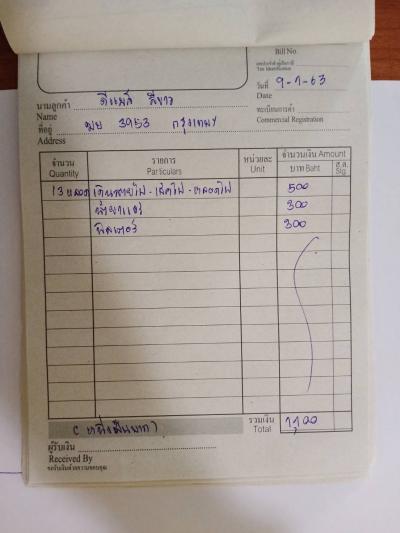 Bill No.
เลขประจำตัวผู้เสียภาษี
Tax Identification
วันที่ 9-1-63
Date
นามลูกค้า ดีแมค สีขาว
Name
ทะเบียนการค้า
Commercial Registration
ที่อยู่ 3953 กรุงเทพฯ
Address
จำนวน รายการ หน่วยละ จำนวนเงิน Amount
Quantity Particulars Unit บาท Baht ส.ต. Stg.
13 หลอด เดินสายไฟ - เช็คไฟ - หลอดไฟ 500
300
300
(หนึ่งพันบาท) รวมเงิน
Total
ผู้รับเงิน
Received By
ขอรับเงินด้วยความขอบคุณ